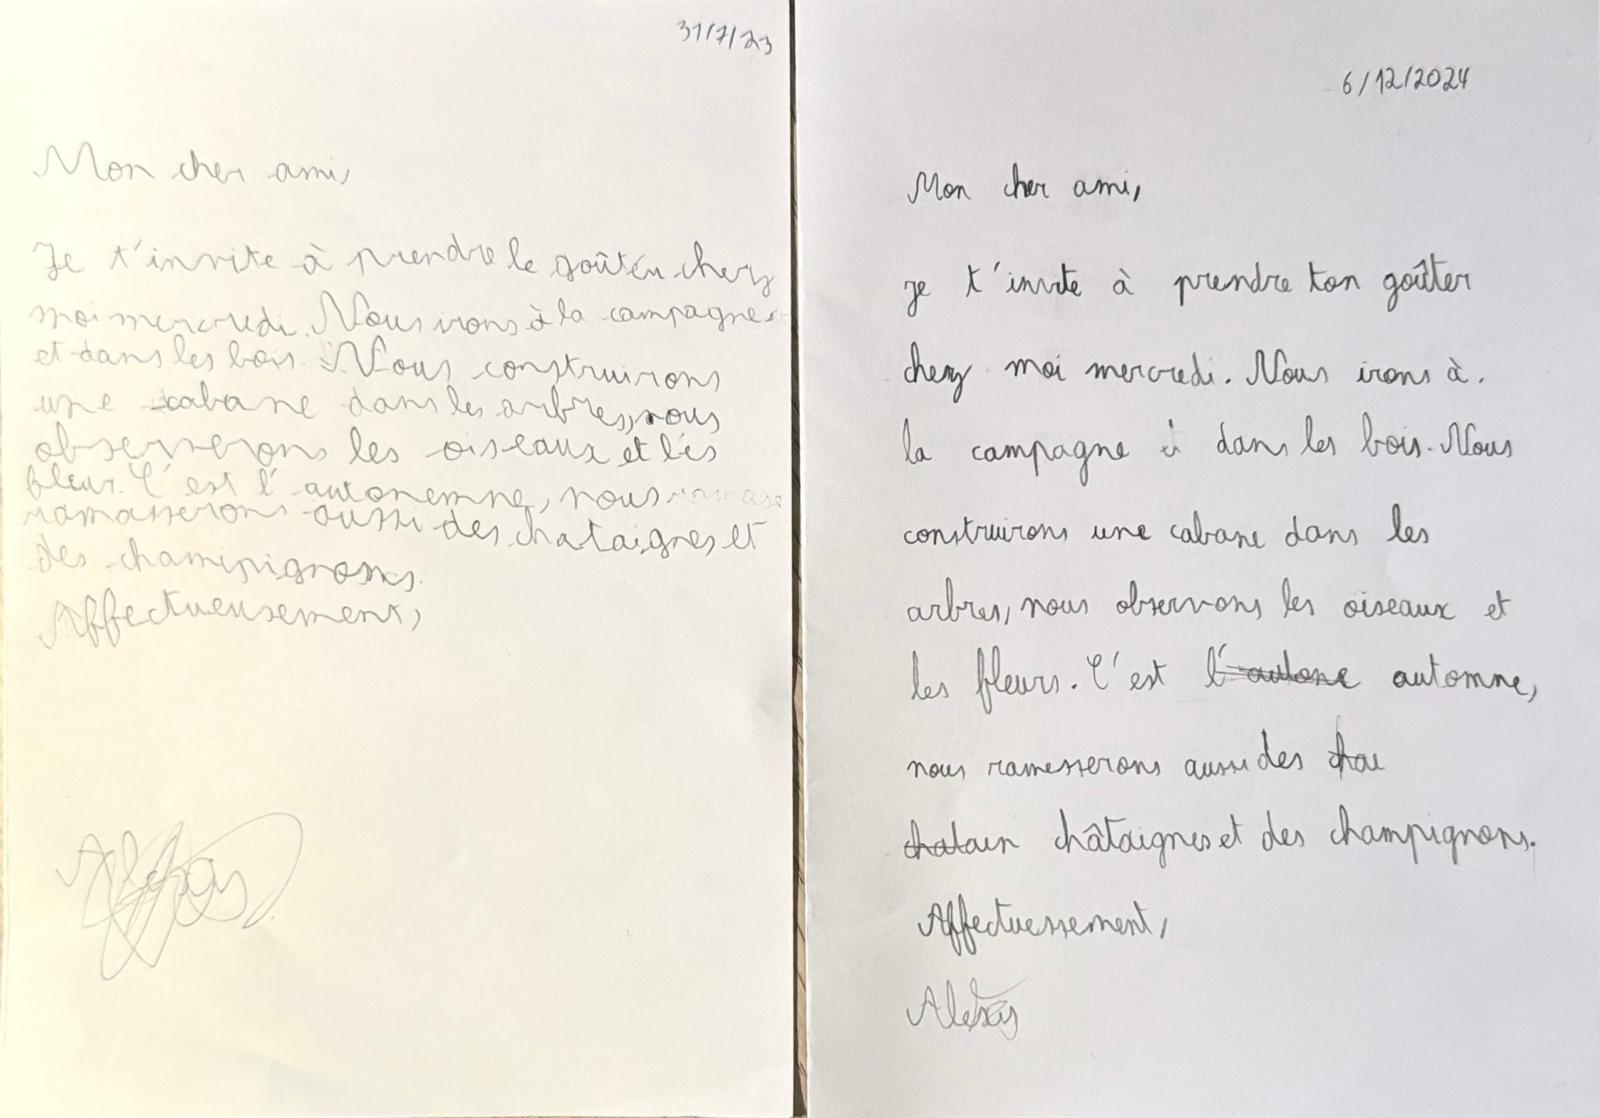 31/7/23
Mon cher ami,
Je t'invite à prendre le goûter chez
moi mercredi. Nous irons à la campagne
et dans les bois. Nous construirons
une cabane dans les arbres, nous
observerons les oiseaux et les
fleur. C'est l'autonemne, nous ramasse
ramasserons aussi des chataignes et
des champignons.
Affectueusement,
Alexis
6/12/2024
Mon cher ami,
je t'invite à prendre ton goûter
chez moi mercredi. Nous irons à.
la campagne è dans les bois. Nous
construirons une cabane dans les
arbres, nous observons les oiseaux et
les fleurs. C'est l'autone automne,
nous ramesserons aussi des chae
chatain châtaignes et des champignons.
Affectuessement,
Alexis